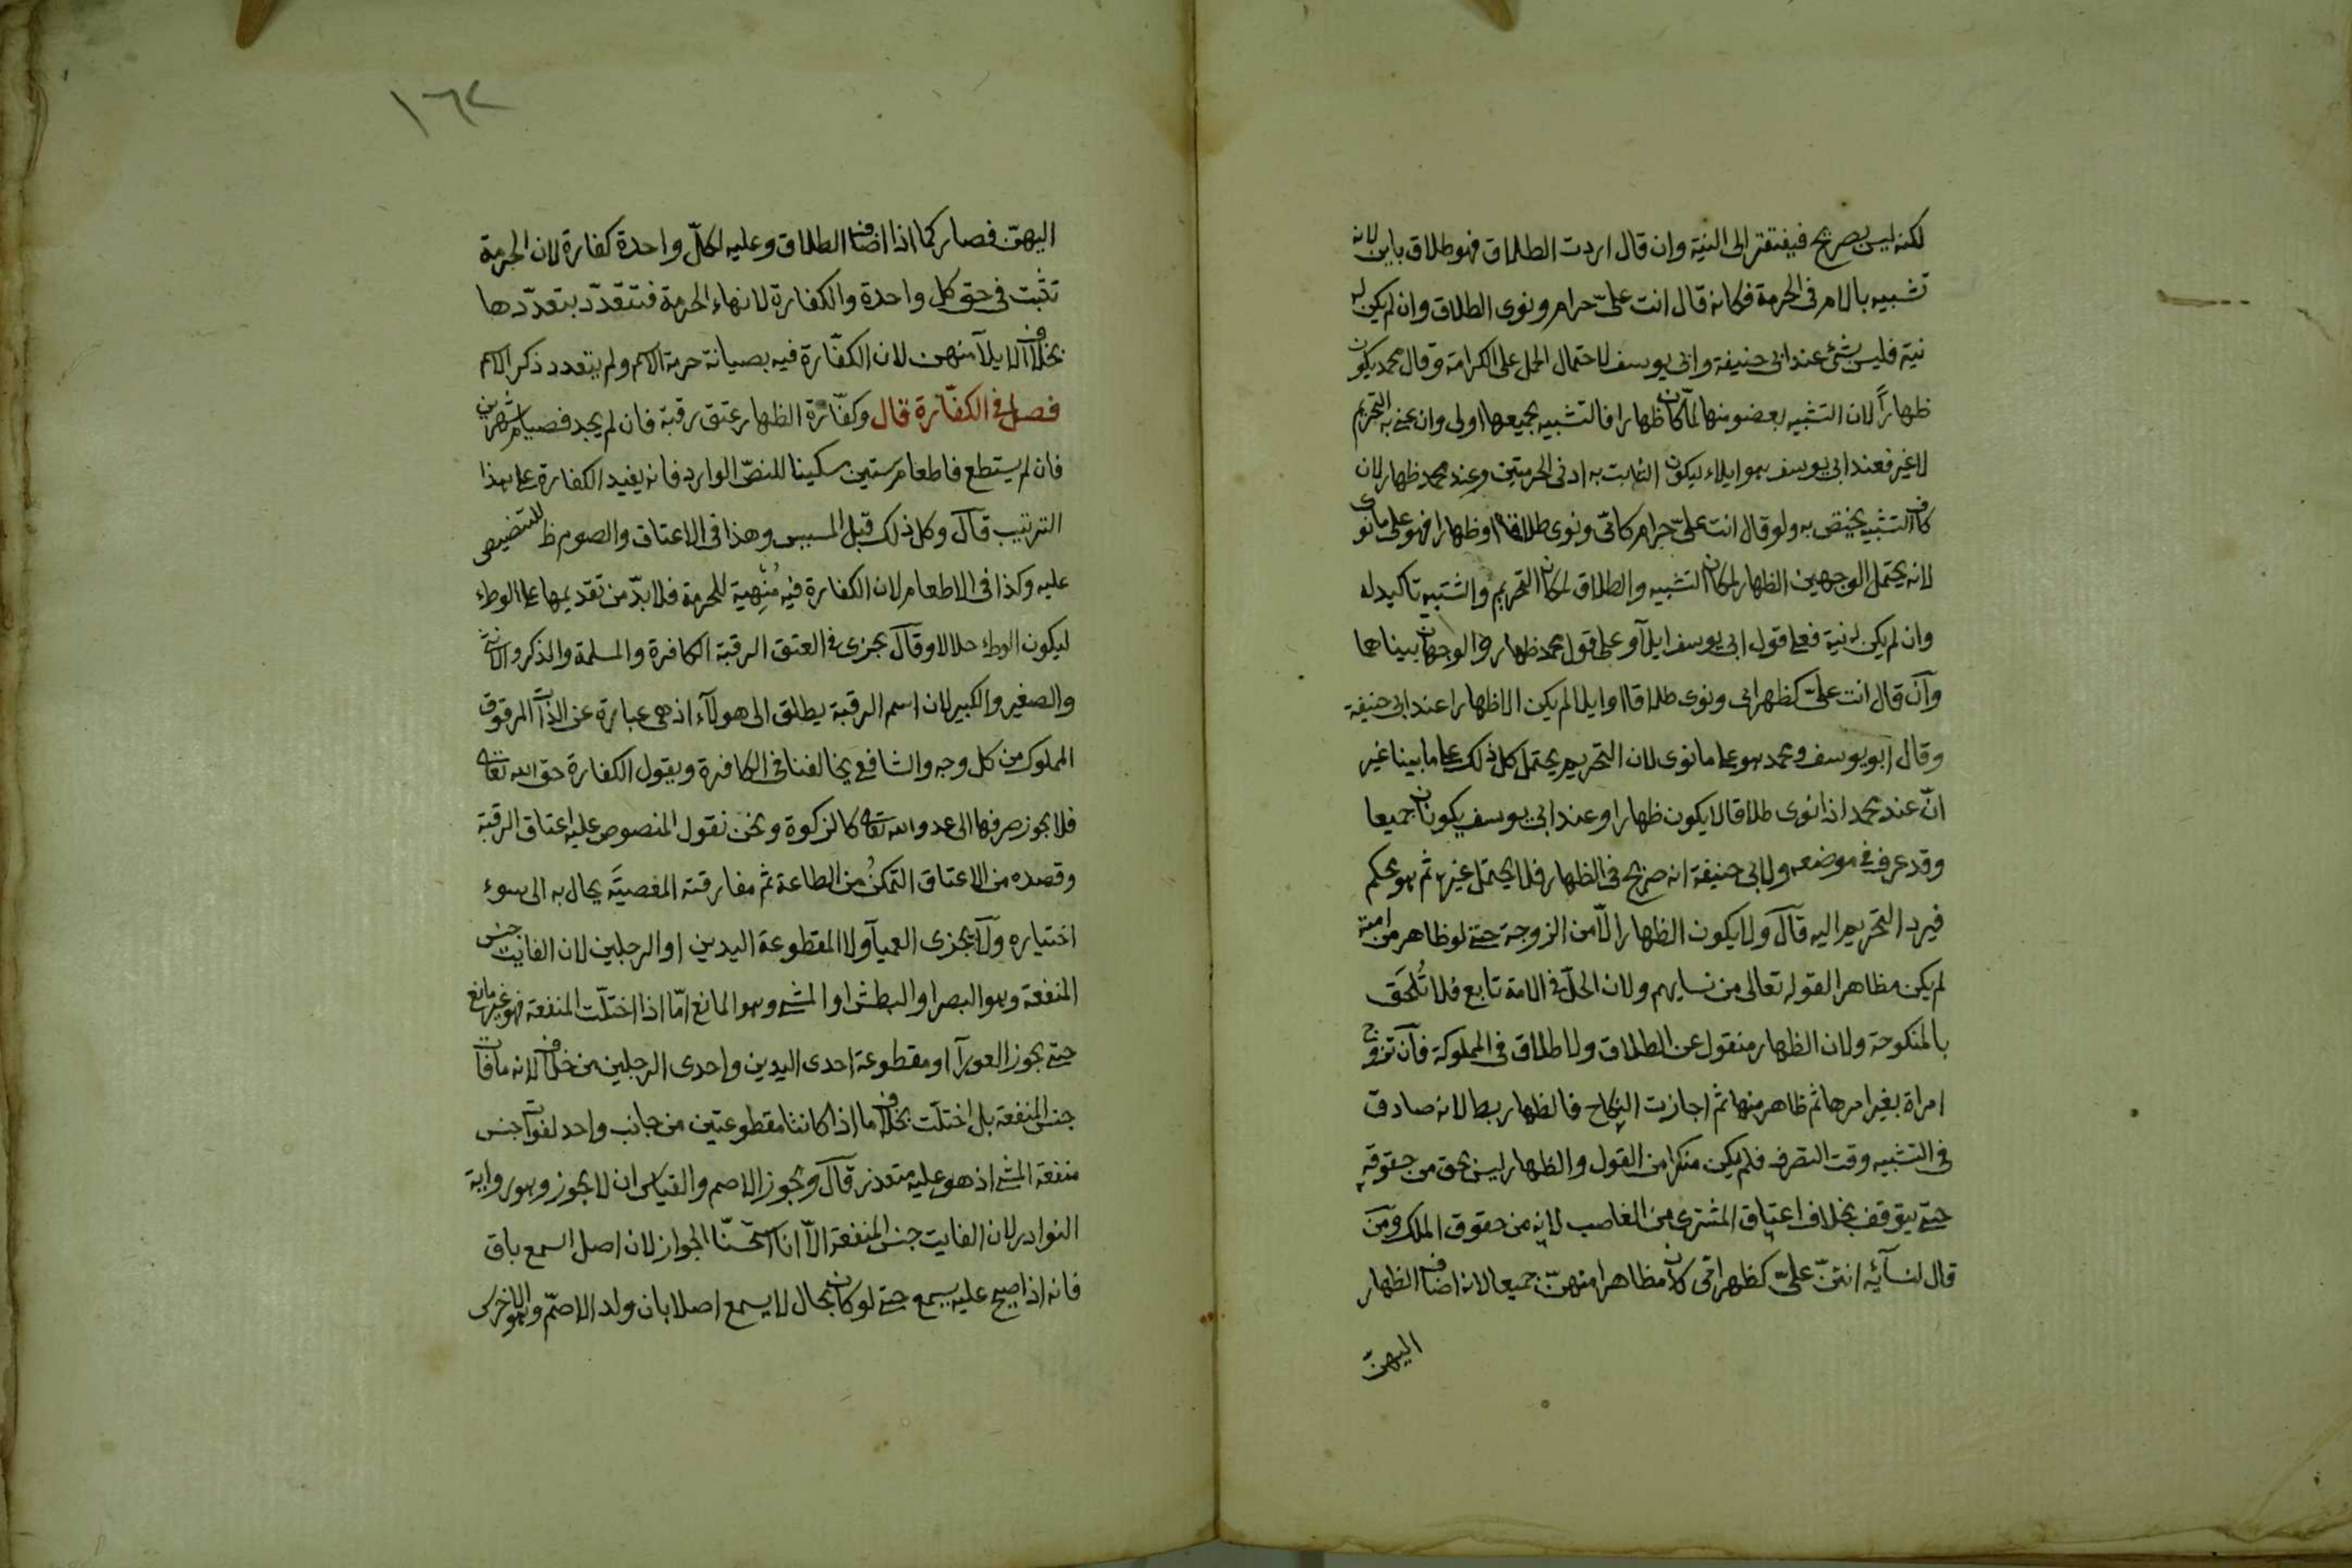 لكنه ليس بصريح فيفتقر الى النية وان قال اردت الطلاق فهو طلاق باين لانه
تشبيه بالام في الحرمة فكانه قال انت علىّ حرام ونوى الطلاق وان لم يكن له
نية فليس بشئ عند ابي حنيفة وابي يوسف لاحتمال الحمل على الكرامة وقال محمد يكون
ظهاراً لان التشبيه بعضو منها لمّا كان ظهارا فالتشبيه بجميعها اولى وان عنى به التحريم
لا غير فعند ابي يوسف هو ايلاء ليكون الثابت به ادنى الحرمتين وعند محمد ظهار لان
كاف التشبيه يختص به ولو قال انت علىّ حرام كامّى ونوى طلاقا او ظهارا فهو على ما نوى
لانه يحتمل الوجهين الظهار لمكان التشبيه والطلاق لمكان التحريم والتشبيه تاكيد له
وان لم يكن له نية فعلى قول ابي يوسف ايلآ وعلى قول محمد ظهار والوجهان بيناهما
وآن قال انت علىّ كظهر امى ونوى طلاقا او ايلا لم يكن الا ظهارا عند ابي حنيفة
وقال ابو يوسف ومحمد هو على ما نوى لان التحريم يحتمل كل ذلك على ما بينا غير
انّ عند محمد اذا نوى طلاقا لا يكون ظهارا وعند ابي يوسف يكونان جميعا
وقد عرف في موضعه ولابي حنيفة انه صريح في الظهار فلا يحتمل غيره ثم هو محكم
فيرد التحريم اليه قآل ولا يكون الظهار الّا من الزوجة حتى لو ظاهر من امته
لم يكن مظاهرا لقوله تعالى من نسايهم ولان الحلّ في الامة تابع فلا تُلحَق
بالمنكوحة ولان الظهار منقول عن الطلاق ولا طلاق في المملوكة فآن تزوج
امراة بغير امرها ثم ظاهر منها ثم اجازت النكاح فالظهار بطلانه صادق
في التشبيه وقت التصرف فلم يكن منكرا من القول والظهار ليس بحق من حقوقه
حتى يتوقف بخلاف اعتاق المشترى من الغاصب لانه من حقوق الملك ومن
قال لنسآئه انتنّ علىّ كظهر امّى كان مظاهرا منهنّ جميعا لانه اضاف الظهار
اليهنّ
١٦٢
اليهنّ فصار كما اذا اضاف الطلاق وعليه لكلّ واحدة كفارة لان الحرمة
تثبت في حق كل واحدة والكفارة لانهاء الحرمة فتتعدّد بتعدّدها
بخلاف الايلآ منهن لان الكفّارة فيه بصيانة حرمة الاسم ولم يتعدد ذكر الاسم
فصل في الكفّارة قال وكفّارة الظهار عتق رقبة فان لم يجد فصيام شهرين
فان لم يستطع فاطعام ستين مسكينا للنصّ الوارد فانه يفيد الكفارة على هذا
الترتيب قآل وكل ذلك قبل المسيس وهذا في الاعتاق والصوم ظ للتنصيص
عليه وكذا في الاطعام لان الكفارة فيه مُنهِية للحرمة فلا بدّ من تقديمها على الوطء
ليكون الوطء حلالا وقآل يجزى في العتق الرقبة الكافرة والمسلمة والذكر والانثى
والصغير والكبير لان اسم الرقبة يطلق الى هولآء اذ هى عبارة عن الذات المرقوق
المملوك من كل وجه والشافعي يخالفنا في الكافرة ويقول الكفارة حق الله تعالى
فلا يجوز صرفها الى عدو الله تعالى كالزكوة ونحن نقول المنصوص عليه اعتاق الرقبة
وقصده من الاعتاق التمكنُ من الطاعة ثم مفارقته المعصيَّة يحال به الى سوء
اختياره ولآ يجزى العميآ ولا المقطوعة اليدين او الرجلين لان الفايت جنس
المنفعة وهو البصر او البطش او المشى وهو المانع امّا اذا اختلّت المنفعة فهو غير مانع
حتى يجوز العورآ او مقطوعة احدى اليدين واحدى الرجلين من خلاف لانه ما فات
جنس المنفعة بل اختلّت بخلاف ما اذا كانتا مقطوعتين من جانب واحد لفوات جنس
منفعة المشى اذ هو عليه متعذر قآل ويجوز الاصم والقياس ان لا يجوز وهو رواية
النوادر لان الفايت جنس المنفعة الّا انا استحسنّا الجواز لان اصل السمع باق
فانه اذا صيح عليه يسمع حتى لو كان بحال لا يسمع اصلا بان ولد الاصمّ وهو الاخرس